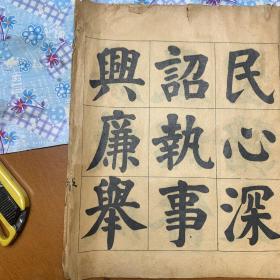 民心深
詔執事
興廉舉